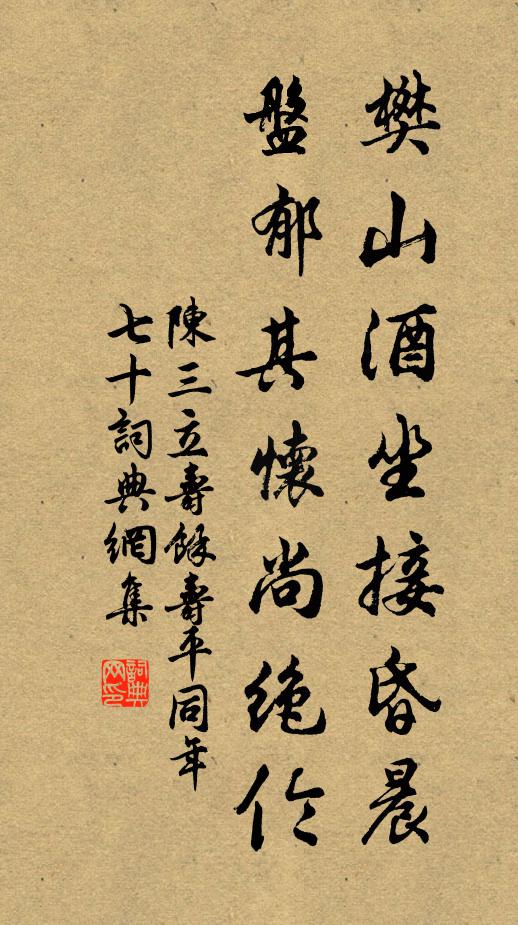 樊山酒坐接昏晨
盤郁其懷尚絶伦
陳三立壽餘壽平同年
七十詞典網集
詞典网印